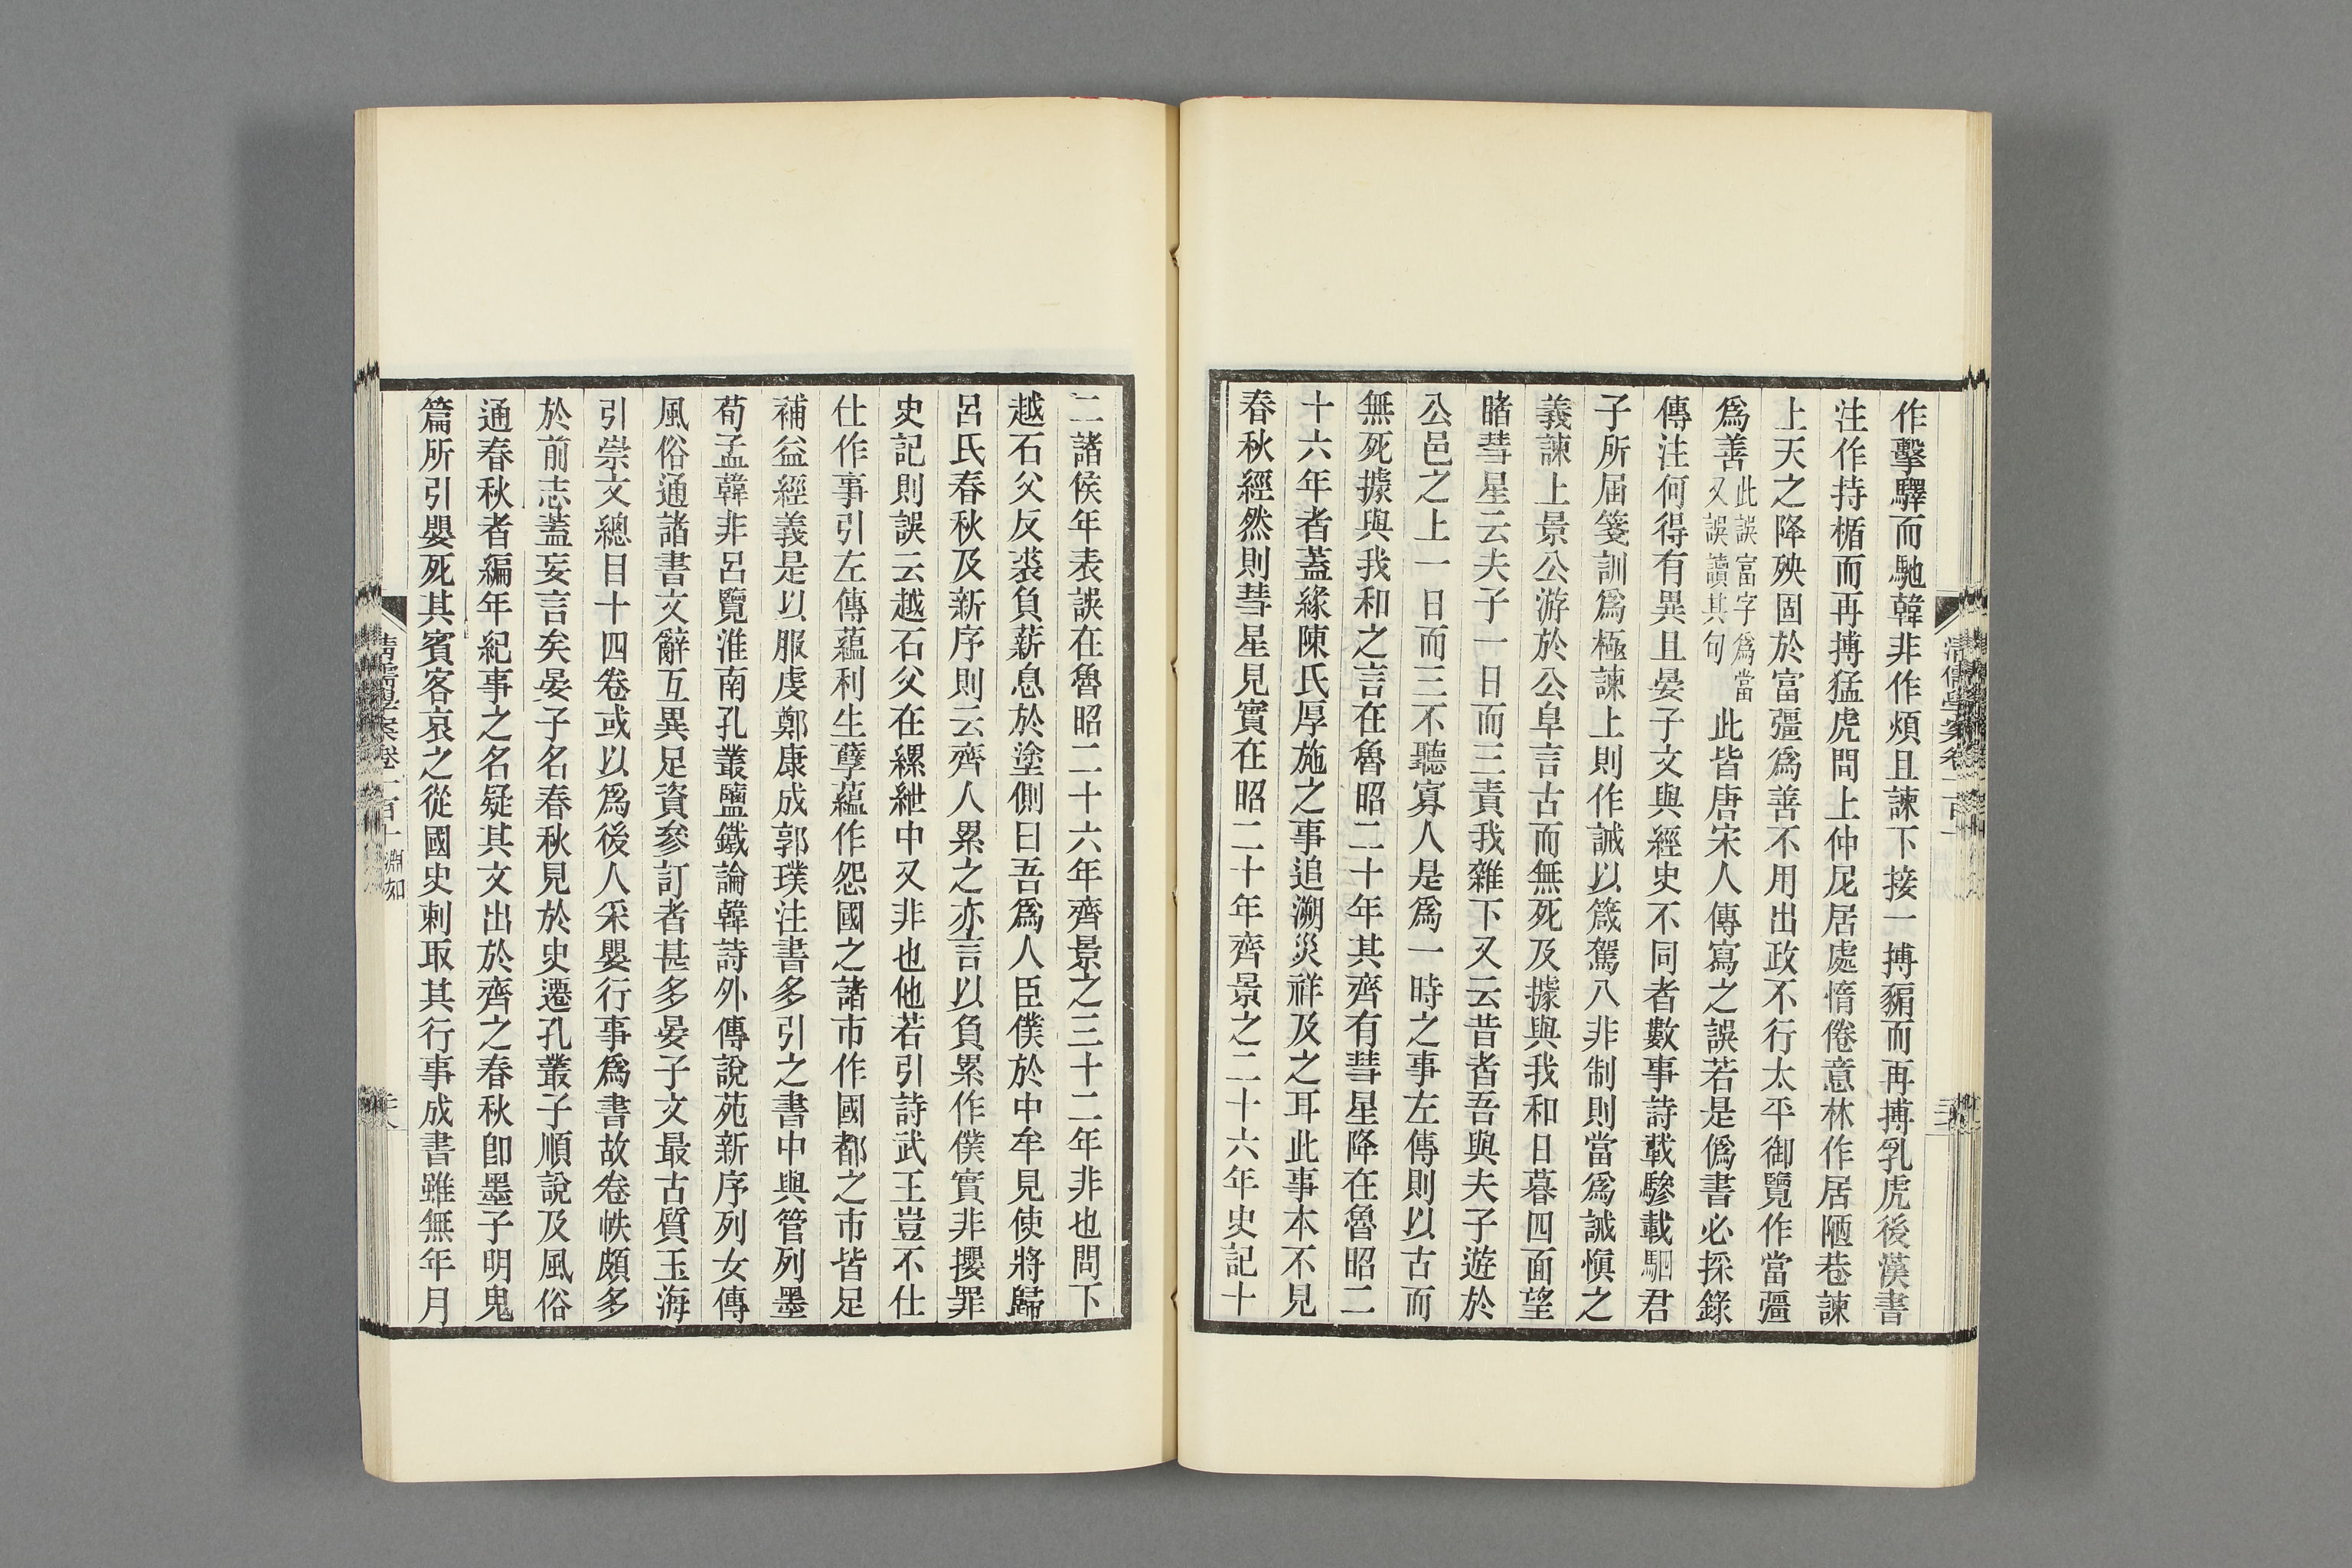 作擊驛而馳韓非作煩且諫下接一搏貒而再搏乳虎後漢書
注作持楯而再搏猛虎問上仲尼居處惰倦意林作居陋巷諫
上天之降殃固於富彊爲善不用出政不行太平御覽作當彊
爲善此誤富字爲當又誤讀其句此皆唐宋人傳寫之誤若是僞書必採錄
傳注何得有異且晏子文與經史不同者數事詩載驂載駟君
子所屆箋訓爲極諫上則作誡以箴駕八非制則當爲誡愼之
義諫上景公游於公阜言古而無死及據與我和日暮四面望
睹彗星云夫子一日而三責我雜下又云昔者吾與夫子遊於
公邑之上一日而三不聽寡人是爲一時之事左傳則以古而
無死據與我和之言在魯昭二十年其齊有彗星降在魯昭二
十六年者蓋緣陳氏厚施之事追溯災祥及之耳此事本不見
春秋經然則彗星見實在昭二十年齊景之二十六年史記十
二諸侯年表誤在魯昭二十六年齊景之三十二年非也問下
越石父反裘負薪息於塗側曰吾爲人臣僕於中牟見使將歸
呂氏春秋及新序則云齊人累之亦言以負累作僕實非攖罪
史記則誤云越石父在縲紲中又非也他若引詩武王豈不仕
仕作事引左傳蘊利生孽蘊作怨國之諸市作國都之市皆足
補益經義是以服虔鄭康成郭璞注書多引之書中與管列墨
荀孟韓非呂覽淮南孔叢鹽鐵論韓詩外傳說苑新序列女傳
風俗通諸書文辭互異足資參訂者甚多晏子文最古質玉海
引崇文總目十四卷或以爲後人采嬰行事爲書故卷帙頗多
於前志蓋妄言矣晏子名春秋見於史遷孔叢子順說及風俗
通春秋者編年紀事之名疑其文出於齊之春秋卽墨子明鬼
篇所引嬰死其賓客哀之從國史刺取其行事成書雖無年月
清儒學案卷一百十 淵如